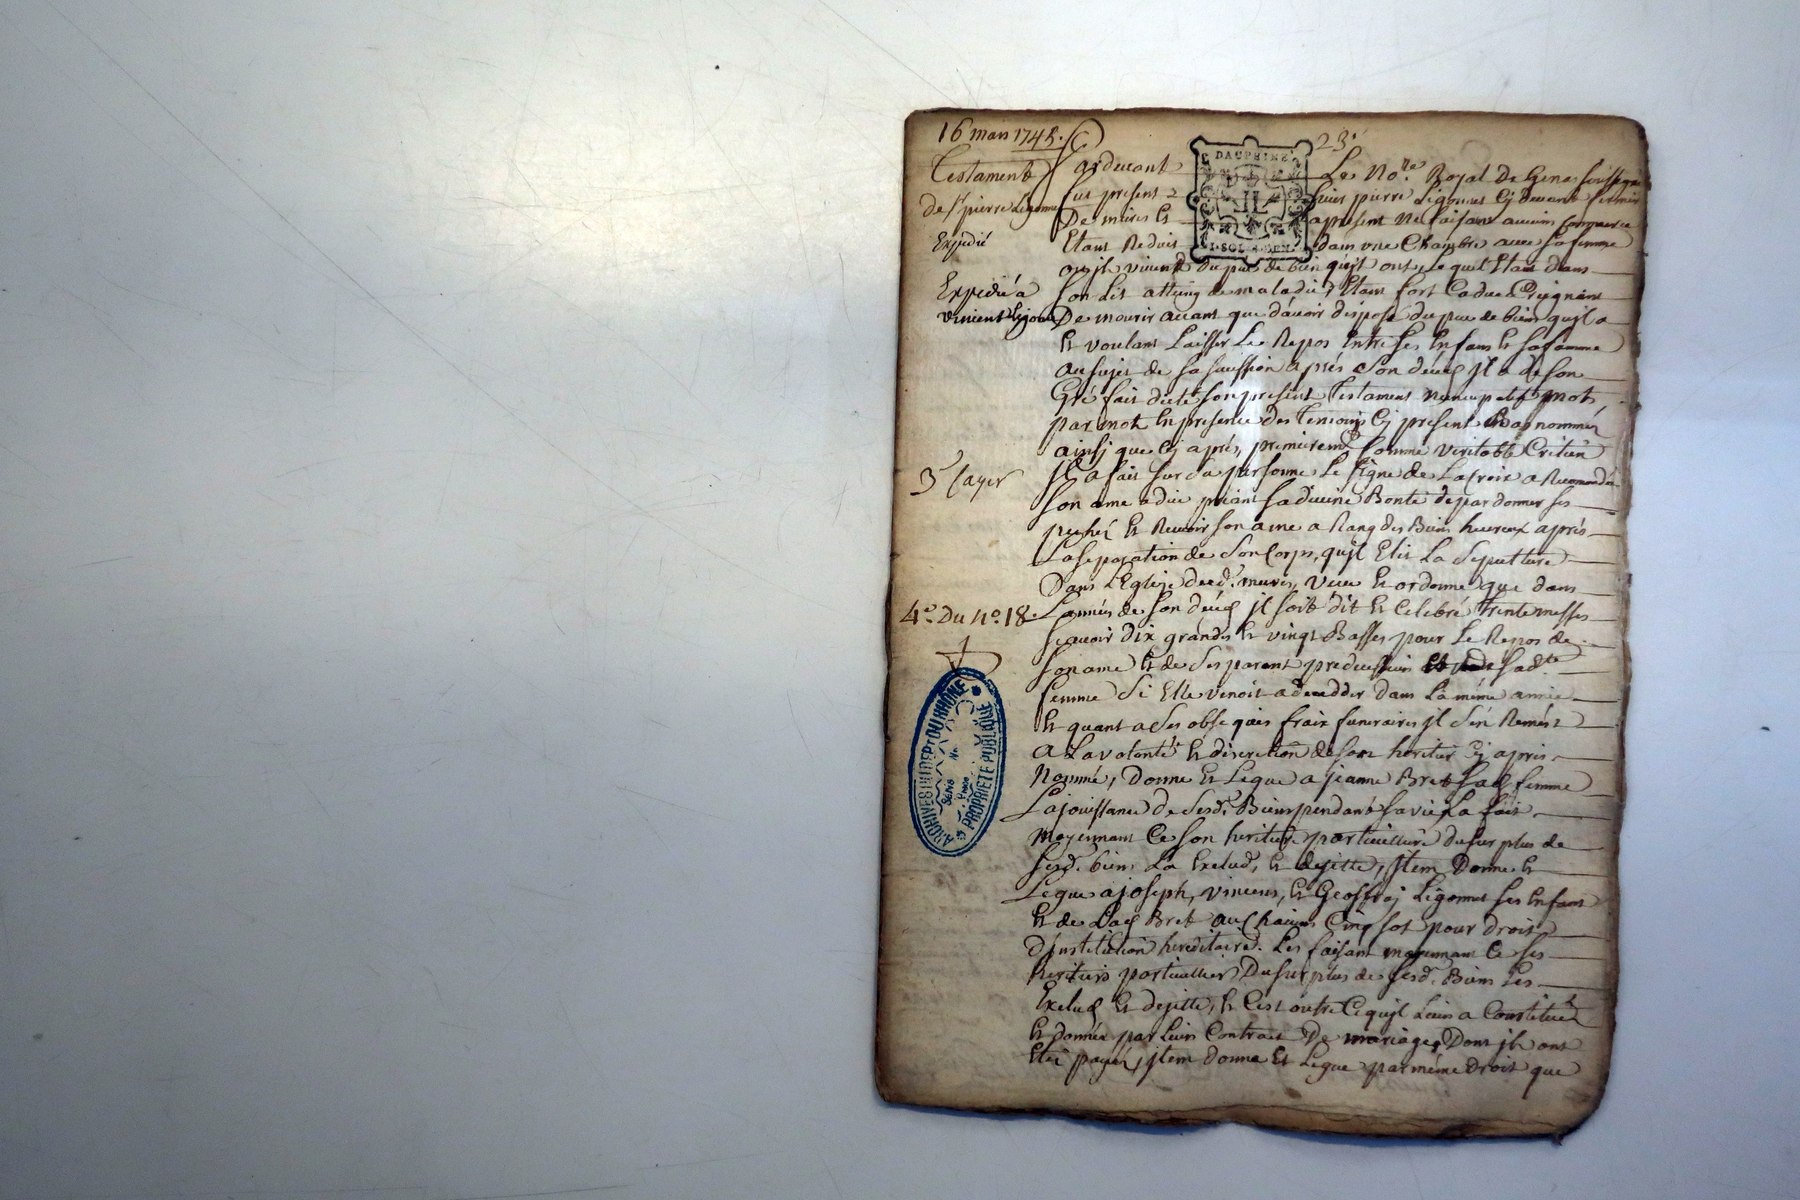 16 mars 1745.
23
Testament
de Sr pierre Ligonnet
Expedié
Expedié a
vincent Ligonnet
3e Cayer
4e. Du no. 18.
DAUPHINÉ
SOL
ARCHIVES DU DEPT DU RHONE
PROPRIETE PUBLIQUE
Pardevant Le Nore. Royal De
fut present Sieur pierre Ligonnet Cy devant fermier
De mures Et apresent ne faisant aucun Commerce
Etant Reduit dans une Chambre avec sa femme
ou jls vivent du peu de bien qu'jls ont, Lequel Etant dans
son Lit atteint de maladie, Etant fort Caduc Craignant
De mourir avant que d'avoir disposé du peu de bien qu'jl a
Et voulant Laisser Le Repos Entre ses Enfans Et sa femme
au sujet de sa sucession après son décés jl a de son
Gré fait dicté son present Testament nuncupatif mot
par mot En presence des Temoins Cy present Bas nommés
ainsi que Cy après, premierement Comme veritable Crétien
jl a fait sur sa personne Le signe de La Croix a Recomandé
son ame a dieu priant sa divine Bonté de pardonner ses
pechés Et Recevoir son ame a Rang des Bien heureux après
La separation de son Corps, qu'jl Elit La sepulture
Dans L'Eglise dud. mures, veut Et ordonne que dans
L'année de son décés jl soit dit Et Celebré trente messes
scavoir dix grandes Et vingt Basses pour Le Repos de
son ame Et de ses parent predecessurs sadte
femme si Elle venoit a deceder dans La même année
Et quant a ses obseques fraix funeraires jl s'en Remet
a La volonté Et discretion de son heritier Cy après
Nommé, Donne Et Legue a jeanne Bret sad femme
La jouissance de sesd. Biens pendant sa vie La fait
moyennant Ce son heritiere particulliere du surplus de
sesd. biens La Exclud, Et dejette, jtem Donne Et
Legue a joseph, vincent, Et Geoffroy Ligonnet ses Enfans
Et de Lad Bret a un Chacun Cinq sol pour droit
D'jnstitution hereditaire. Les faisant moyennant Ce ses
heritiers particulliers Du surplus de sesd. Biens Les
Exclud Et dejette, Et C'est outre Ce qu'jl Leurs a Constitué
Et donné par Leurs Contract De mariage, Dont jls ont
Eté payés, jtem donne Et Legue par même droit que